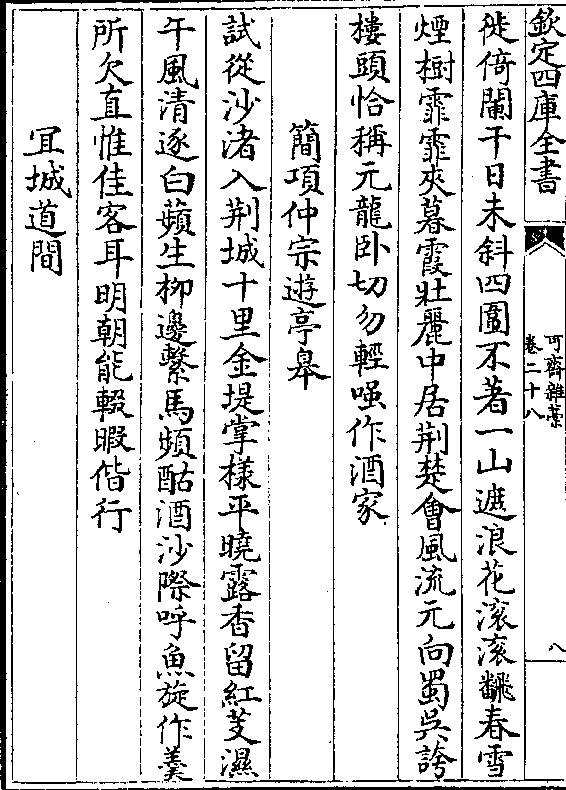 欽定四庫全書
可齋雜藁
卷二十八
八
徙倚闌干日未斜四圍不著一山遮浪花滾滾飜春雪
煙樹霏霏夾暮霞壯麗中居荆楚會風流元向蜀吳誇
樓頭恰稱元龍卧切勿輕嗤作酒家
簡項仲宗遊亭臯
試從沙渚入荆城十里金堤掌樣平曉露香留紅芰濕
午風清逐白蘋生柳邊繫馬頻酤酒沙際呼魚旋作羮
所欠直惟佳客耳明朝能輟暇偕行
宜城道間